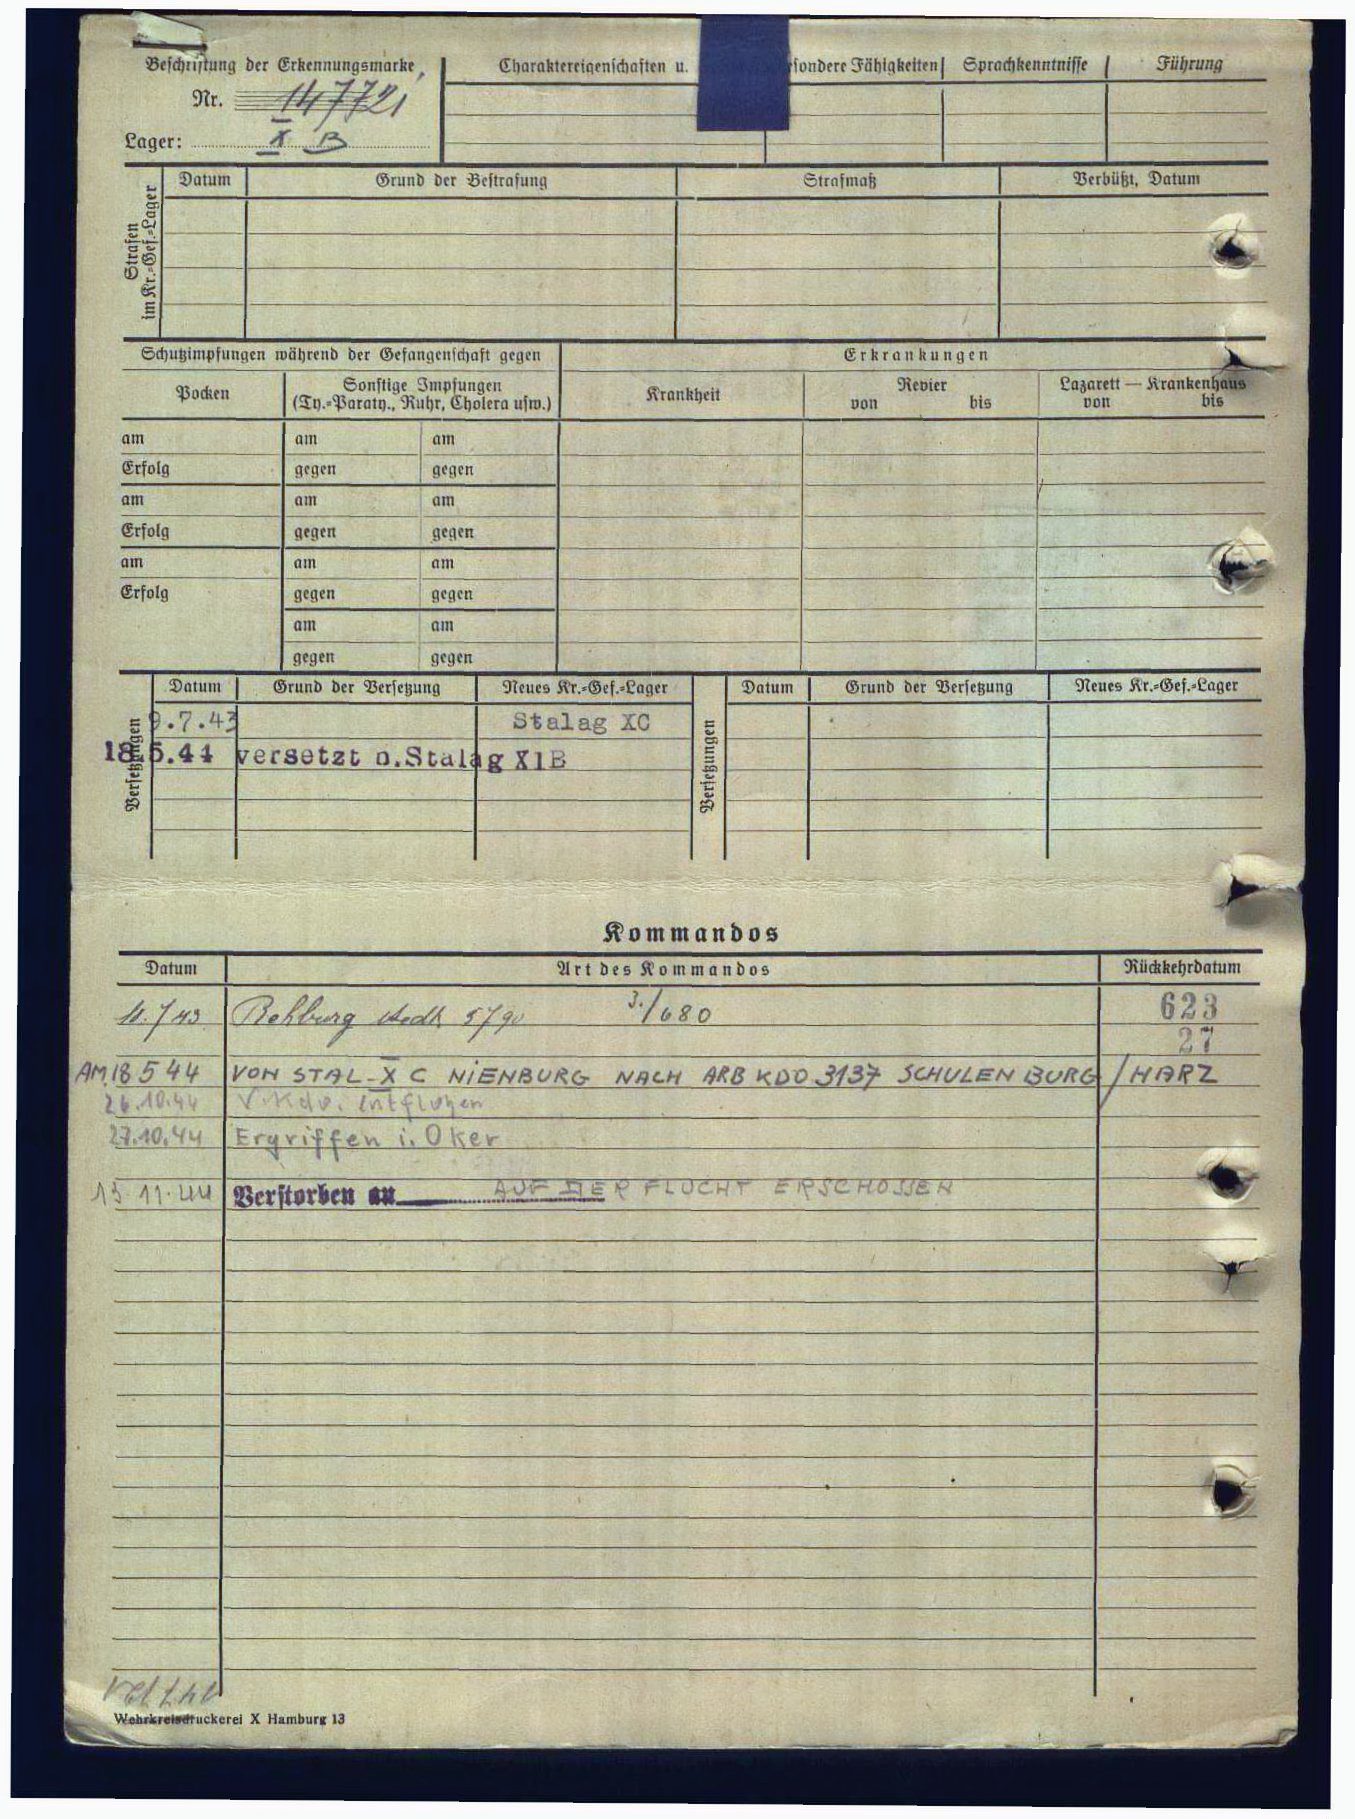 Beschriftung der Erkennungsmarke
Nr. 147721
Lager: X B
Charaktereigenschaften u. sondere Fähigkeiten Sprachkenntnisse Führung
Strafen im Kr.-Gef.-Lager
Datum Grund der Bestrafung Strafmaß Verbüßt, Datum
Schutzimpfungen während der Gefangenschaft gegen
Erkrankungen
Pocken
Sonstige Impfungen
(Ty.-Paraty., Ruhr, Cholera usw.)
Krankheit
Revier
von bis
Lazarett — Krankenhaus
von bis
am am am
Erfolg gegen gegen
am am am
Erfolg gegen gegen
am am am
Erfolg gegen gegen
am am
gegen gegen
Versetzungen
Datum Grund der Versetzung Neues Kr.-Gef.-Lager
9.7.43 Stalag XC
18.5.44 versetzt n. Stalag X1B
Versetzungen
Datum Grund der Versetzung Neues Kr.-Gef.-Lager
Kommandos
Datum Art des Kommandos Rückkehrdatum
Rehburg 5790 3./680 623
27
AM 18 5 44 VON STAL-X C NIENBURG NACH ARB KDO 3137 SCHULENBURG / HARZ
26.10.44 V. Kdo. entflohen
27.10.44 Ergriffen i. Oker
13 11.44 Verstorben an AUF DER FLUCHT ERSCHOSSEN
Wehrkreisdruckerei X Hamburg 13